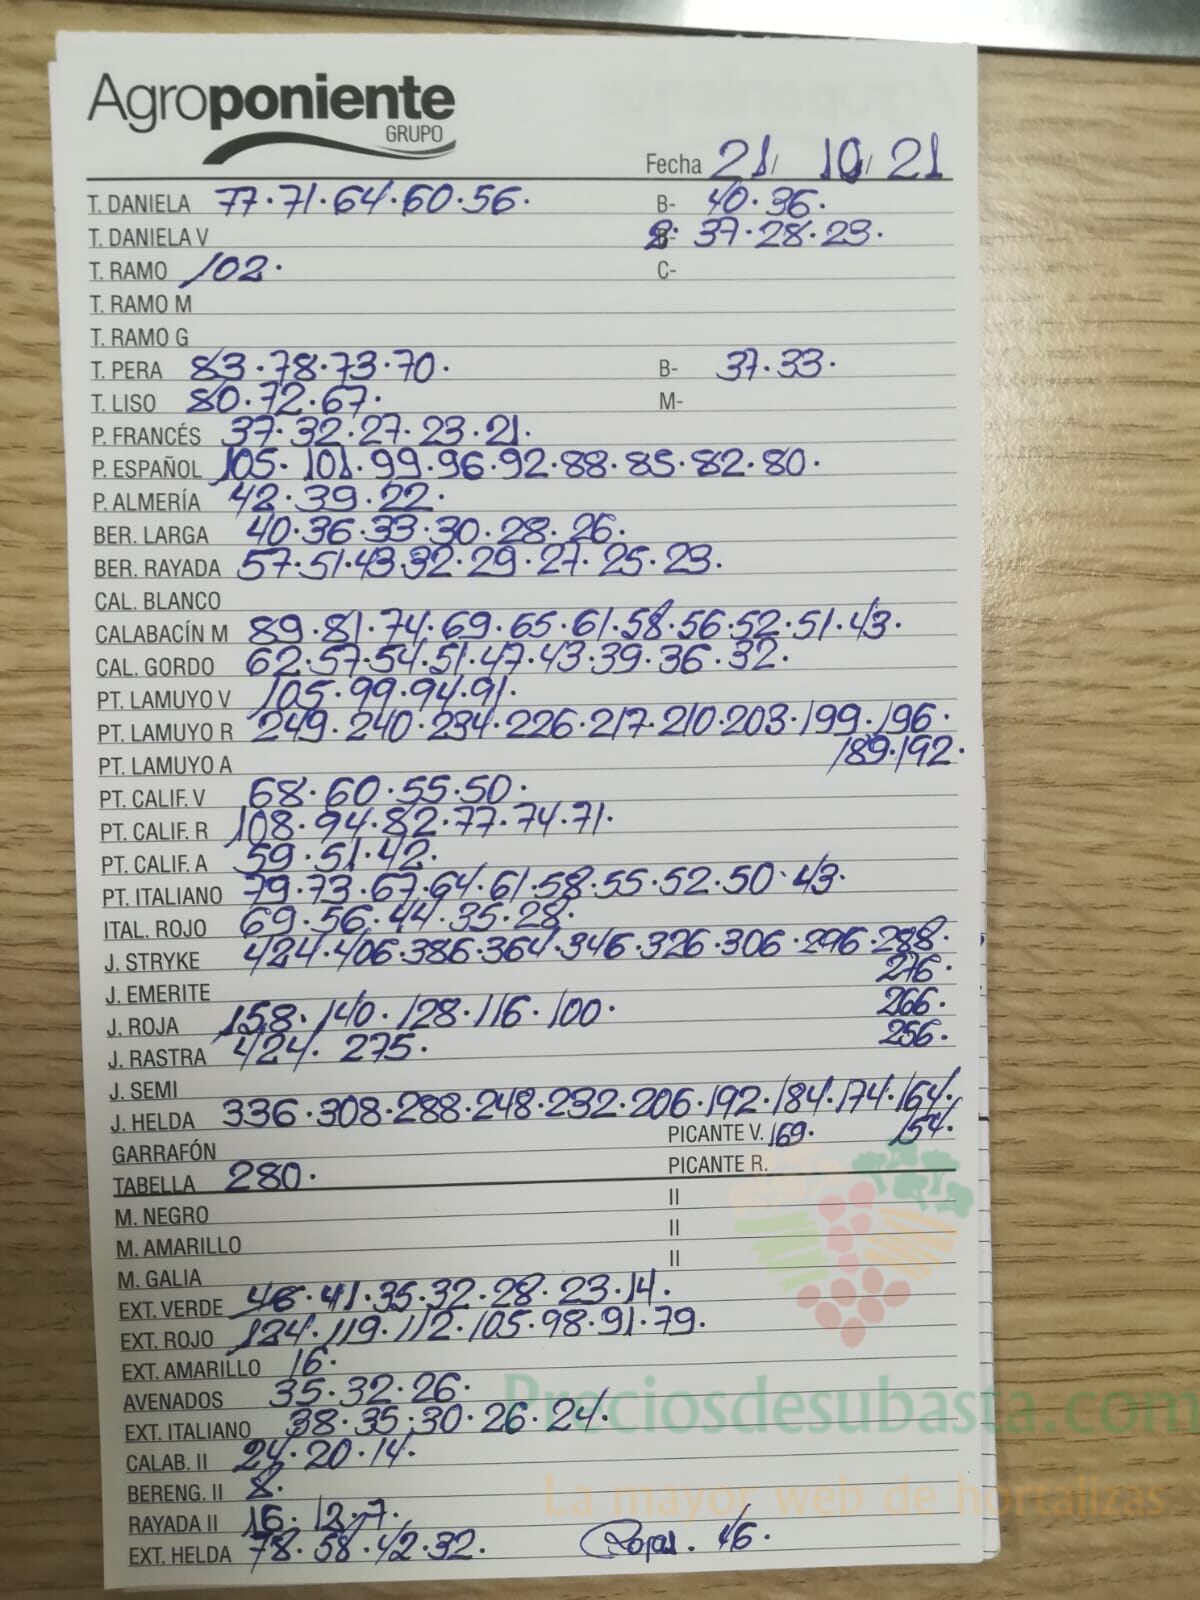 Agroponiente
GRUPO
Fecha 21/ 10/ 21
T. DANIELA 77·71·64·60·56· B- 40·36·
T. DANIELA V 37·28·23·
T. RAMO 102· C-
T. RAMO M
T. RAMO G
T. PERA 83·78·73·70· B- 37·33·
T. LISO 80·72·67· M-
P. FRANCÉS 37·32·27·23·21·
P. ESPAÑOL 105·101·99·96·92·88·85·82·80·
P. ALMERÍA 42·39·22·
BER. LARGA 40·36·33·30·28·26·
BER. RAYADA 57·51·43·32·29·27·25·23·
CAL. BLANCO
CALABACÍN M 89·81·74·69·65·61·58·56·52·51·43·
CAL. GORDO 62·57·54·51·47·43·39·36·32·
PT. LAMUYO V 105·99·94·91·
PT. LAMUYO R 249·240·234·226·217·210·203·199·196·
PT. LAMUYO A 189·192·
PT. CALIF. V 68·60·55·50·
PT. CALIF. R 108·94·82·77·74·71·
PT. CALIF. A 59·51·42·
PT. ITALIANO 79·73·67·64·61·58·55·52·50·43·
ITAL. ROJO 69·56·44·35·28·
J. STRYKE 424·406·386·364·346·326·306·296·288·
276·
J. EMERITE
266·
J. ROJA 158·140·128·116·100·
256·
J. RASTRA 424· 275·
J. SEMI
J. HELDA 336·308·288·248·232·206·192·184·174·164·
PICANTE V. 169· 154·
GARRAFÓN
PICANTE R.
TABELLA 280·
M. NEGRO II
M. AMARILLO II
M. GALIA II
EXT. VERDE 46·41·35·32·28·23·14·
EXT. ROJO 124·119·112·105·98·91·79·
EXT. AMARILLO 16·
AVENADOS 35·32·26·
Preciosdesubasta.com
EXT. ITALIANO 38·35·30·26·24·
CALAB. II 24·20·14·
BERENG. II 8·
La mayor web de hortalizas
RAYADA II 16·12·7·
EXT. HELDA 78·58·42·32· Rojas. 46·